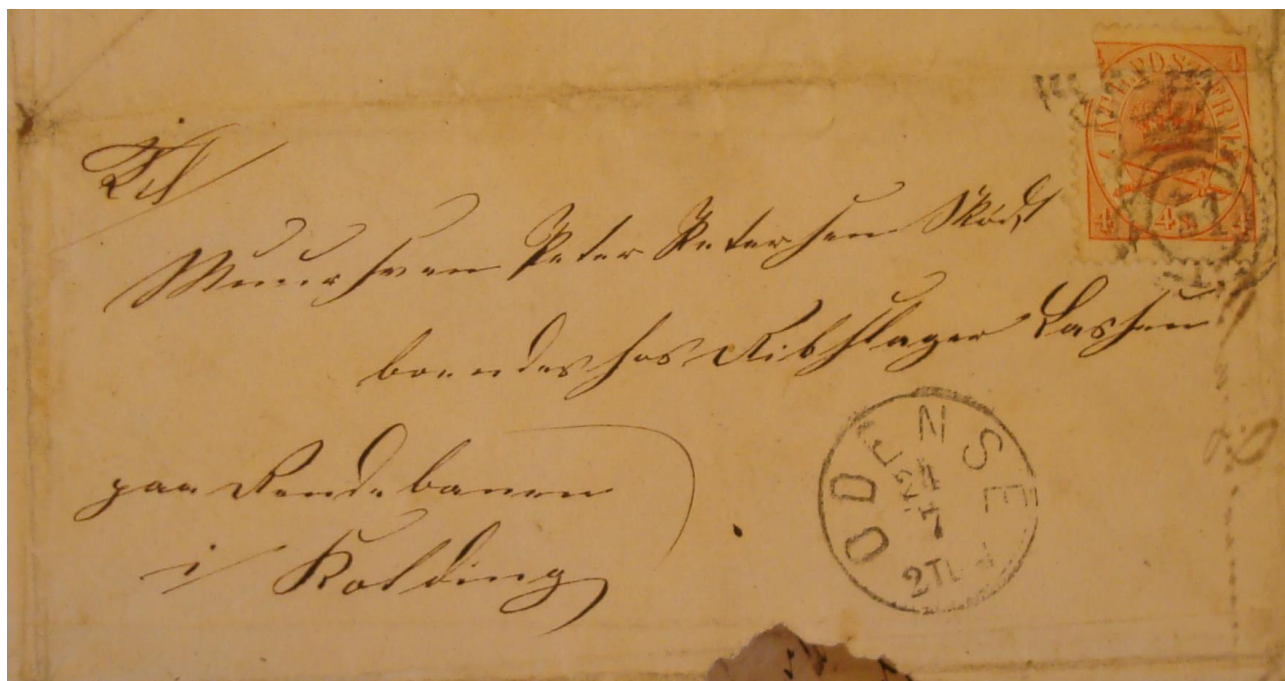 4 4
KGL POST FRM
4 4S 4
Til
Muursven Peter Petersen Skødt
boendes hos Rebslager Lassen
paa Rendebanen
i Kolding
ODENSE
24
7
2TP